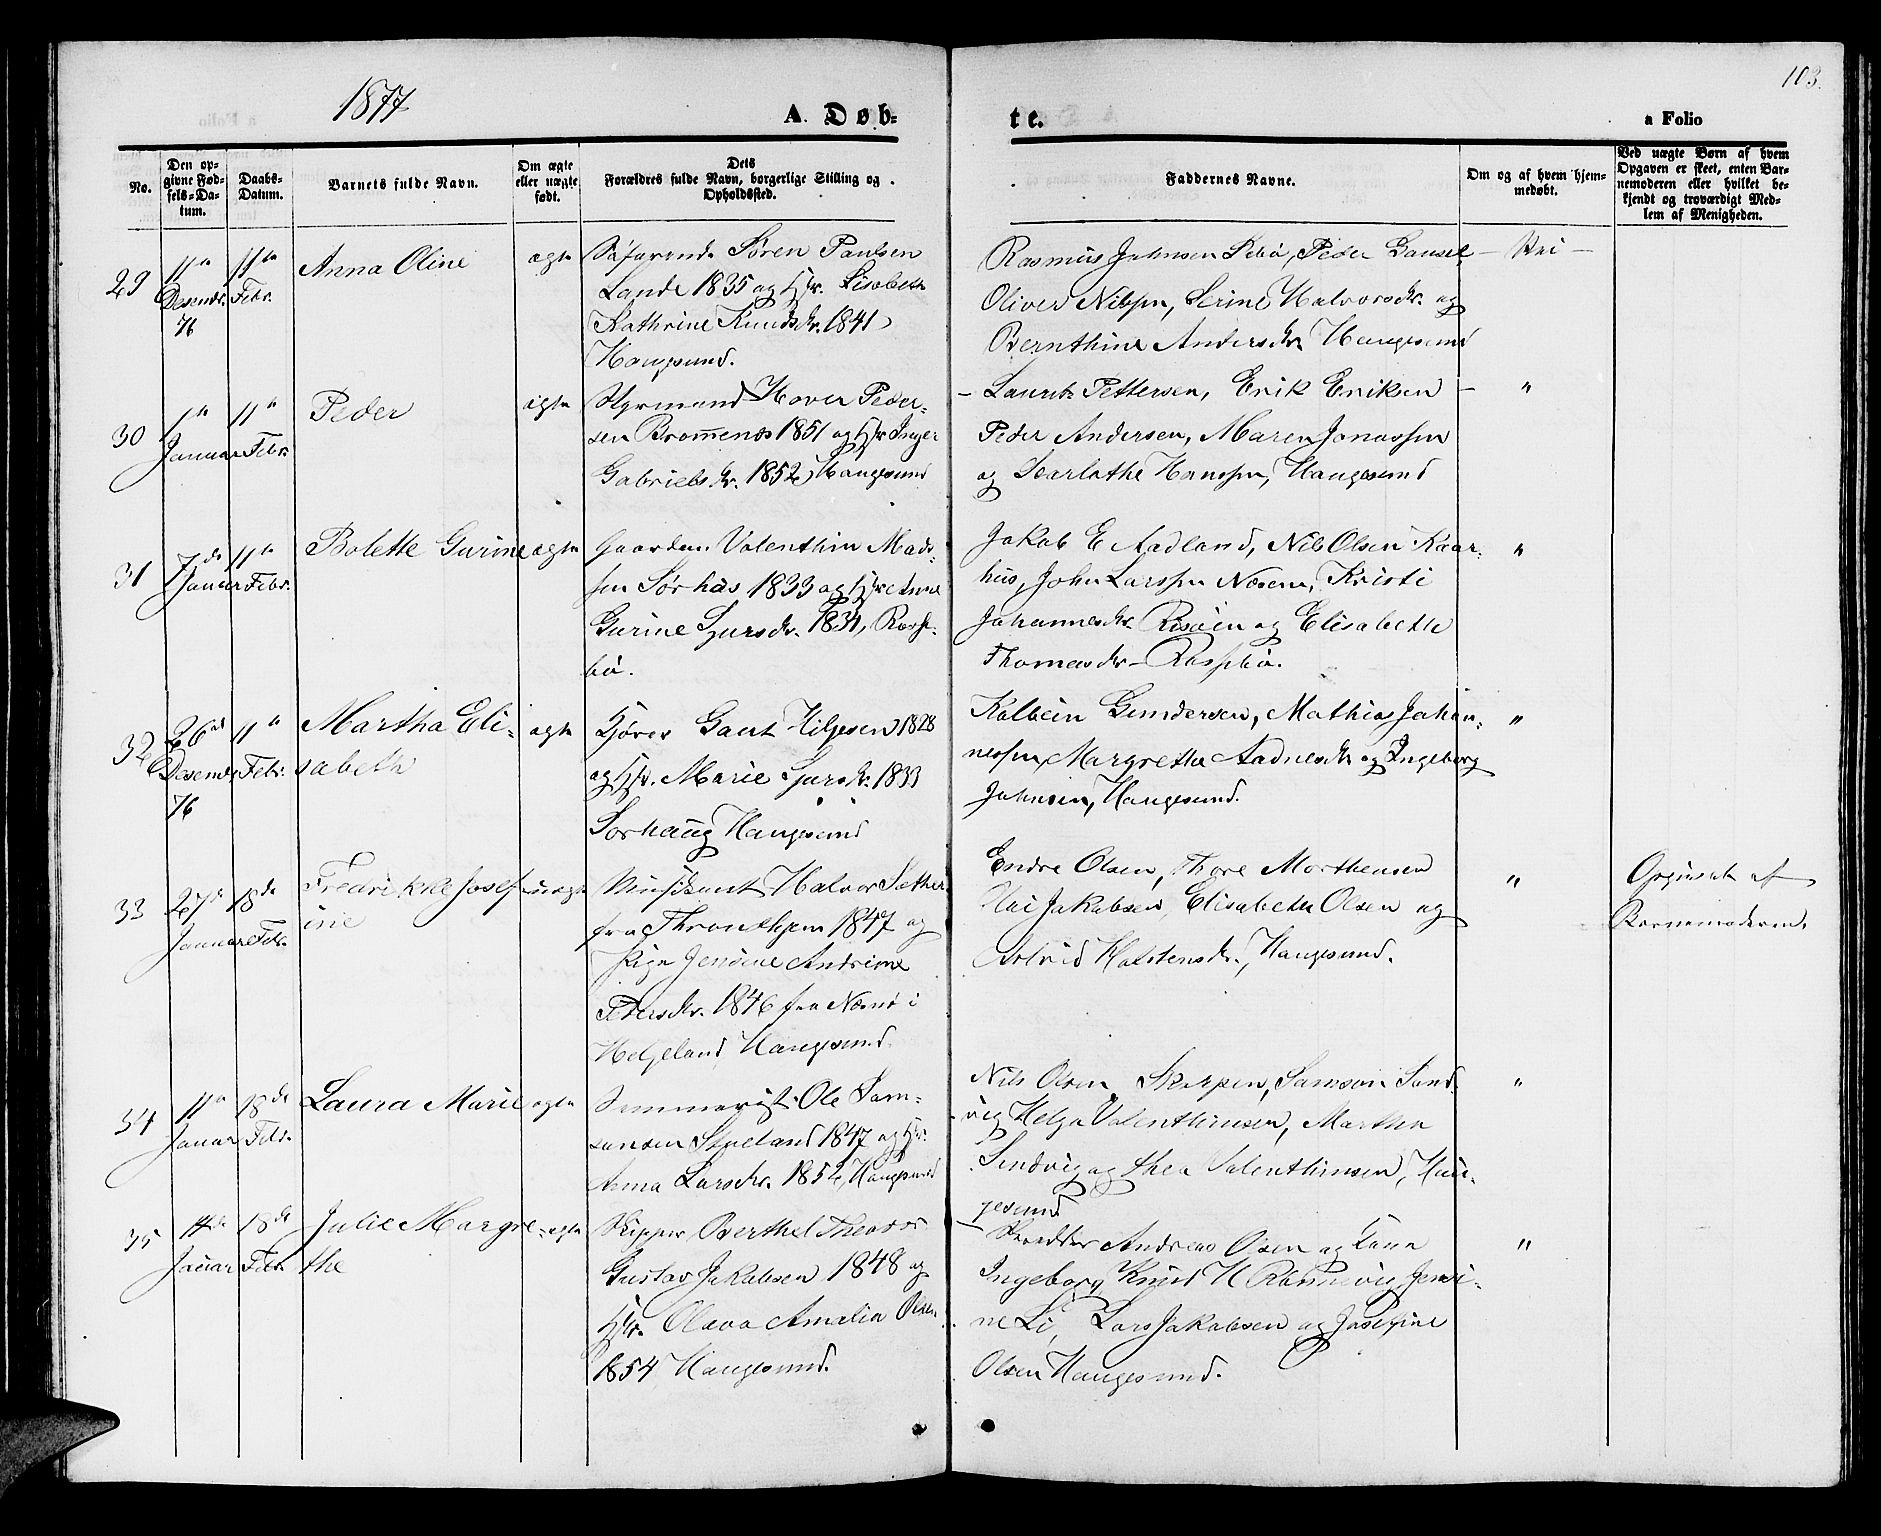 1877
A. Døb-
te.
103.
a Folio
No.
Den op-
givne Fød-
sels-Da-
tum.
Daabs-
Datum.
Barnets fulde Navn.
Om ægte
eller uægte
født.
Dets
Forældres fulde Navn, borgerlige Stilling og
Opholdssted.
Faddernes Navne.
Om og af hvem hjem-
medøbt.
Ved uægte Børn af hvem
Opgaven er skeet, enten Bar-
nemoderen eller hvilket be-
kjendt og troværdigt Med-
lem af Menigheden.
29
11te
Desembr.
76
11te
Febr.
Anna Oline
ægte
Søfarende Søren Paulsen
Lande 1835 og Hstr. Lisabeth
Kathrine Knudsdr. 1841
Haugesund.
Rasmus Johnsen Sebø, Peder
Oliver Nilsen, Serine Halvorsdr. og
Bernthine Andersdr. Haugesund
Nei
30
1te
Januar
11te
Febr.
Peder
ægte
Styrmand Hover Peder-
sen Bromenes 1851 og Hstr. Inger
Gabrielsdr. 1852, Haugesund
Laurits Pettersen, Erik Eriksen
Peder Andersen, Maren Jonassen
og Scarlothe Hanssen, Haugesund
"
31
7de
Januar
11te
Febr.
Bolette Gurine
ægte
Gaardm. Valenthin Mads-
sen Sørhus 1833 og Hstr. Anne
Gurine Sjursdr. 1831, Rosse-
bø.
Jakob E Aadland, Nils Olsen Kaar-
hus, John Larssen Næsene, Kristi
Johannesdr. Risøen og Elisabeth
Thomasdr. Rossebø.
"
32
26de
Desembr
76
11te
Febr.
Martha Eli-
sabeth
ægte
Kjører Gaut Hiljesen 1828
og Hstr. Marie Sjursdr. 1833
Sørhaug Haugesund
Kolbein Gundersen, Mathias Johan-
nessen, Margrethe Aadnesdr og Ingeborg
Johnsen, Haugesund.
"
33
27de
Januar
18de
Febr.
Fredrikke Josef-
ine
uægte
Musikant Halvor Sæther
fra Throndhjem 1847 og
Pige Jensine Andrine
Pedersdr. 1846 fra Næsnø i
Helgeland, Haugesund.
Endre Olsen, Thore Morthensen
Olai Jakobsen, Elisabeth Olsen og
Astrid Halstensdr., Haugesund.
"
Opgivet af
Barnemoderen.
34
11te
Januar
18de
Febr.
Laura Marie
ægte
Tømmermst. Ole Sam-
sonsen Stueland 1847 og Hstr.
Anna Larsdr. 1852, Haugesund
Nils Olsen, Samson Sand-
vig, Helge Valenthinsen, Martha
Sandvig og Thea Valenthinsen, Hau-
gesund
"
35
14de
Januar
18de
Febr
Julie Margre-
the
ægte
Skipper Berthel Theodor
Gustav Jakobsen 1848 og
Hstr. Olava Amalia Olsen
1854 Haugesund.
Skredder Andreas Olsen og Kone
Ingeborg, Knud H Rønnevig, Jensi-
ne Li, Lars Jakobsen og Josefine
Olsen Haugesund.
"